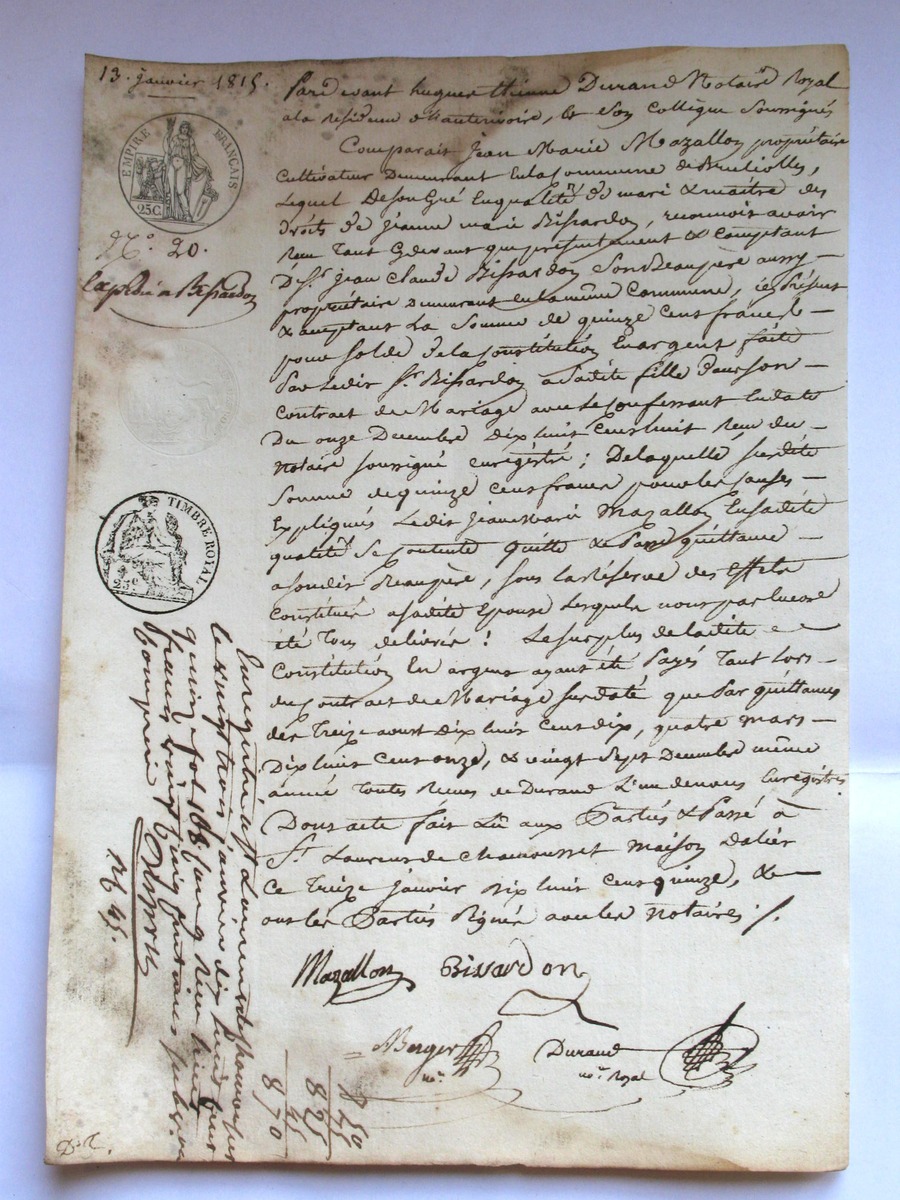 13. janvier 1815.
EMPIRE FRANÇAIS
25C
N.º 20.
Expédié a Bissardon
TIMBRE ROYAL
25C
Pard evant hugues étienne Durand Notaire Royal
ala Résidence d'hauterivoire, & Son Collègue Soussignés
Comparait Jean Marie Mazallon propriétaire
Cultivateur Demeurant En la Commune de Brulliolles,
Lequel De son Gré En qualité de mari & maître des
droits de jeanne marie Bissardon, reconnoit avoir
Reçu Tant Cydevant que présentement & Comptant
De Sr. jean Claude Bissardon Son Beaupère aussy
propriétaire Demeurant en la même Commune, ici Présent
& acceptant La Somme de quinze Cens francs
pour Solde de la Constitution En argent faite
Par Ledit Sr. Bissardon a Sadite fille Dans Son
Contrat de Mariage avec Le Confessant En date
Du onze Decembre Dix huit Cens huit Reçu du
Notaire Soussigné enregistré ; De laquelle Susdite
Somme de quinze Cens francs pour les Causes
Expliqués Ledit Jean Marie Mazallon En Sadite
qualité Se Contente quitte & Passe quittance
a Son dit Beaupère, Sous la Réserve des Effets
Constitués a Sadite Epouse Lesquels nous pas Encore
été Tous délivrés ! Le Surplus de ladite
Constitution En argent ayant été Payés Tant Lors
du Contrat de Mariage Susdaté que Par quittances
des Treize aoust Dix huit Cens dix, quatre mars
Dix huit Cens onze, & vingt Sept Decembre même
année Toutes Recues de Durand L'un de nous Enregistrés
Dont acte fait Lû aux Parties & Passé à
St. Laurent de Chamousset Maison Dalier
Ce Treize janvier Dix huit Cens quinze, &
ont les Parties Signé avec les Notaires ./.
Mazallon Bissardon
Berger
nore.
Durand
nore. Royal
Enregistré a St. Laurent de chamousset
le vingt trois janvier dix huit cent
quinze fol. 168
francs vingt cinq centimes
compris
8 25
45
8 70